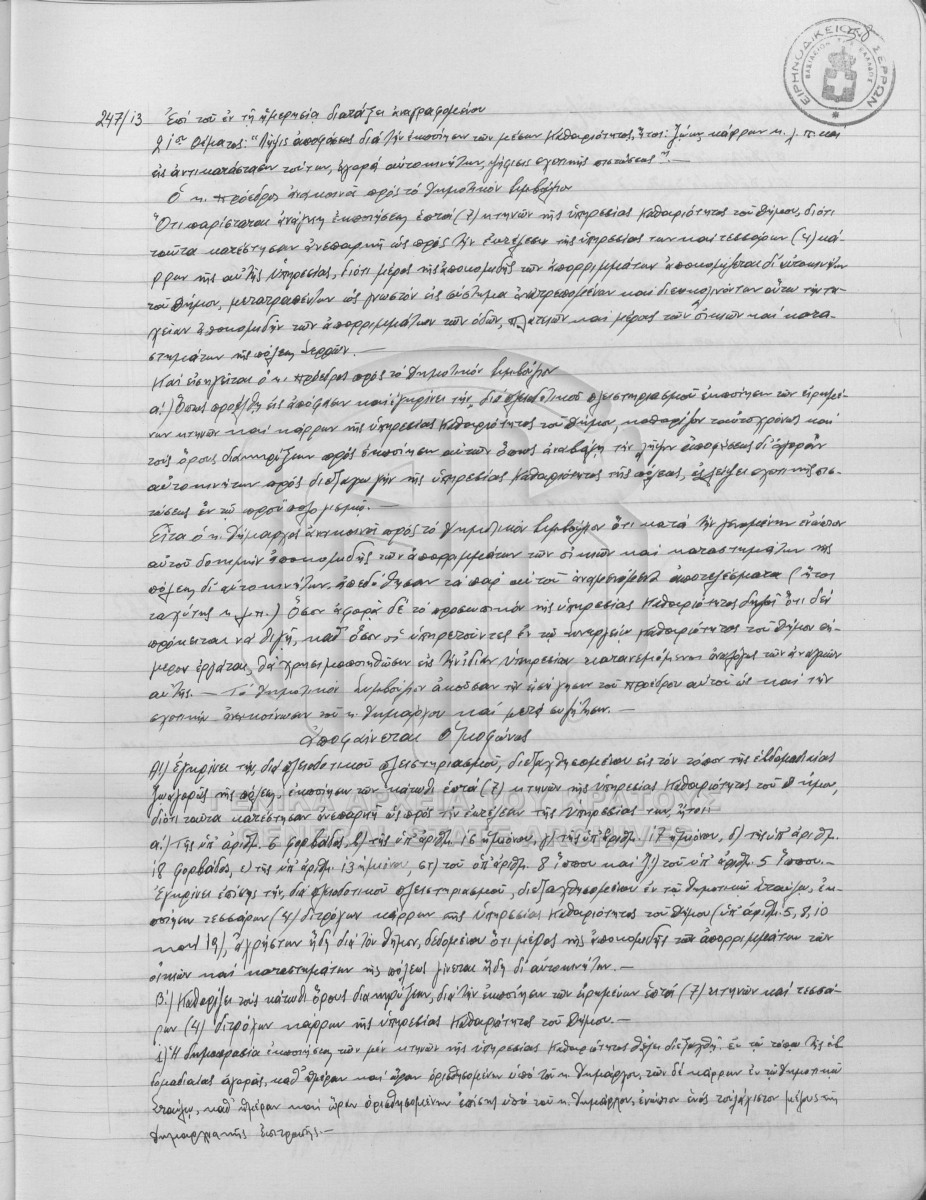 ΕΙΡΗΝΟΔΙΚΕΙΟΝ ΣΕΡΡΩΝ
ΒΑΣΙΛΕΙΟΝ ΤΗΣ ΕΛΛΑΔΟΣ
247/13 Ἐπί τοῦ ἐν τῇ ἡμερησίᾳ διατάξει ἀναγραφομένου
21ου θέματος: "Λῆψις ἀποφάσεως διά τήν ἐκποίησιν τῶν μέσων Καθαριότητος, ἤτοι: Ζῴων, κάρρων κ.λ.π. καί
εἰς ἀντικατάστασιν τούτων, ἀγορά αὐτοκινήτων, ψήφισις σχετικῆς πιστώσεως".—
Ὁ κ. Πρόεδρος ἀνακοινοῖ πρός τό Δημοτικόν Συμβούλιον
Ὅτι παρίσταται ἀνάγκη ἐκποιήσεως ἑπτά (7) κτηνῶν τῆς ὑπηρεσίας Καθαριότητος τοῦ Δήμου, διότι
ταῦτα κατέστησαν ἀνεπαρκῆ ὡς πρός τήν ἐκτέλεσιν τῆς ὑπηρεσίας των καί τεσσάρων (4) κά-
ρρων τῆς αὐτῆς ὑπηρεσίας, διότι μέρος τῆς ἀποκομιδῆς τῶν ἀπορριμμάτων ἀποκομίζεται δι' αὐτοκινήτων
τοῦ Δήμου, μετατραπέντων ὡς γνωστόν εἰς σύστημα ἀνατρεπομένων καί διευκολυνόντων οὕτω τήν τα-
χεῖαν ἀποκομιδήν τῶν ἀπορριμμάτων τῶν ὁδῶν, πλατειῶν καί μέρους τῶν οἰκιῶν καί κατα-
στημάτων τῆς πόλεως Σερρῶν.—
Καί εἰσηγεῖται ὁ κ. Πρόεδρος πρός τό Δημοτικόν Συμβούλιον
α') Ὅπως προέλθῃ εἰς ἀπόφασιν καί ἐγκρίνει τήν, διά πλειοδοτικοῦ πλειστηριασμοῦ ἐκποίησιν τῶν εἰρημέ-
νων κτηνῶν καί κάρρων τῆς ὑπηρεσίας Καθαριότητος τοῦ Δήμου, καθορίζον ταὐτοχρόνως καί
τούς ὅρους διακηρύξεως πρός ἐκποίησιν αὐτῶν ὅπως ἀναβάλῃ τήν λῆψιν ἀποφάσεως δι' ἀγοράν
αὐτοκινήτων πρός διεξαγωγήν τῆς ὑπηρεσίας Καθαριότητος τῆς πόλεως, ἐλλείψει σχετικῆς πισ-
τώσεως ἐν τῷ προϋπολογισμῷ.—
Εἶτα ὁ κ. Δήμαρχος ἀνακοινοῖ πρός τό Δημοτικόν Συμβούλιον ὅτι κατά τήν γενομένην ἐνώπιον
αὐτοῦ δοκιμήν ἀποκομιδῆς τῶν ἀπορριμμάτων τῶν οἰκιῶν καί καταστημάτων τῆς
πόλεως δι' αὐτοκινήτων, ἀπεδόθησαν τά παρ' αὐτοῦ ἀναμενόμενα ἀποτελέσματα (ἤτοι
ταχύτης κ.λ.π.) Ὅσον ἀφορᾷ δέ τό προσωπικόν τῆς ὑπηρεσίας Καθαριότητος δηλοῖ ὅτι δέν
πρόκειται νά θιγῇ, καθ' ὅσον οἱ ὑπηρετοῦντες ἐν τῷ συνεργείῳ Καθαριότητος τοῦ Δήμου σή-
μερον ἐργάται, θά χρησιμοποιηθῶσιν εἰς τήν ἰδίαν ὑπηρεσίαν κατανεμόμενοι ἀναλόγως τῶν ἀναγκῶν
αὐτῆς.— Τό Δημοτικόν Συμβούλιον ἀκοῦσαν τήν εἰσήγησιν τοῦ Προέδρου αὐτοῦ ὡς καί τήν
σχετικήν ἀνακοίνωσιν τοῦ κ. Δημάρχου καί μετά συζήτησιν.—
Ἀποφαίνεται Ὁμοφώνως
Α') Ἐγκρίνει τήν, διά πλειοδοτικοῦ πλειστηριασμοῦ, διεξαχθησομένου εἰς τόν τόπον τῆς ἑβδομαδιαίας
ζωαγορᾶς τῆς πόλεως, ἐκποίησιν τῶν κάτωθι ἑπτά (7) κτηνῶν τῆς ὑπηρεσίας Καθαριότητος τοῦ Δήμου,
διότι ταῦτα κατέστησαν ἀνεπαρκῆ ὡς πρός τήν ἐκτέλεσιν τῆς ὑπηρεσίας των, ἤτοι:
α) Τῆς ὑπ' ἀριθμ. 6 φορβάδος, β) τῆς ὑπ' ἀριθμ. 16 ἡμιόνου, γ) τῆς ὑπ' ἀριθμ. 17 ἡμιόνου, δ) τῆς ὑπ' ἀριθμ.
18 φορβάδος, ε) τῆς ὑπ' ἀριθμ. 13 ἡμιόνου, στ) τοῦ ὑπ' ἀριθμ. 8 ἵππου καί ζ) τοῦ ὑπ' ἀριθμ. 5 ἵππου.—
Ἐγκρίνει ἐπίσης τήν, διά πλειοδοτικοῦ πλειστηριασμοῦ, διεξαχθησομένου ἐν τῷ Δημοτικῷ Σταύλῳ, ἐκ-
ποίησιν τεσσάρων (4) διτρόχων κάρρων τῆς ὑπηρεσίας Καθαριότητος τοῦ Δήμου (ὑπ' ἀριθμ. 5, 8, 10
καί 19), ἀχρήστων ἤδη διά τόν Δῆμον, δεδομένου ὅτι μέρος τῆς ἀποκομιδῆς τῶν ἀπορριμμάτων τῶν
οἰκιῶν καί καταστημάτων τῆς πόλεως γίνεται ἤδη δι' αὐτοκινήτων.—
Β') Καθορίζει τούς κάτωθι ὅρους διακηρύξεως, διά τήν ἐκποίησιν τῶν εἰρημένων ἑπτά (7) κτηνῶν καί τεσσά-
ρων (4) διτρόχων κάρρων τῆς ὑπηρεσίας Καθαριότητος τοῦ Δήμου.—
1) Ἡ δημοπρασία ἐκποιήσεως τῶν μέν κτηνῶν τῆς ὑπηρεσίας Καθαριότητος θέλει διεξαχθῇ ἐν τῷ τόπῳ τῆς ἑβ-
δομαδιαίας ἀγορᾶς, καθ' ἡμέραν καί ὥραν ὁρισθησομένην ὑπό τοῦ κ. Δημάρχου, τῶν δέ κάρρων ἐν τῷ Δημοτικῷ
Σταύλῳ, καθ' ἡμέραν καί ὥραν ὁρισθησομένην ἐπίσης ὑπό τοῦ κ. Δημάρχου, ἐνώπιον ἑνός τοὐλάχιστον μέλους τῆς
Δημαρχιακῆς Ἐπιτροπῆς.—
ΓΕΝΙΚΑ ΑΡΧΕΙΑ ΤΟΥ ΚΡΑΤΟΥΣ